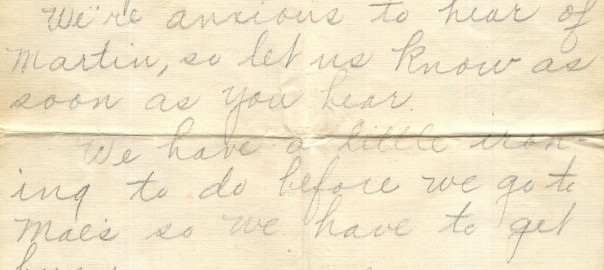 We're anxious to hear of
Martin, so let us know as
soon as you hear.
We have a little iron-
ing to do before we go to
Mae's so we have to get